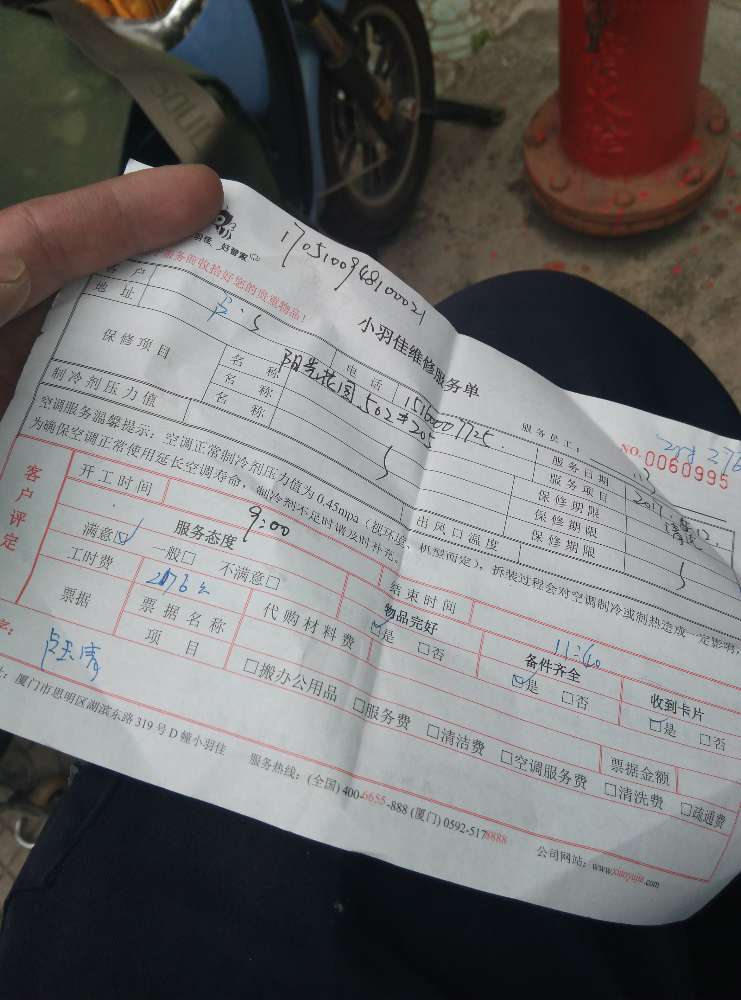 好管家
1705100948100021
服务前收拾好您的贵重物品!
小羽佳维修服务单
服务员工:
NO.0060995
客户
电话
服务日期
地址
阳光花园
502#205
服务项目
保修项目
名称
保修期限
名称
保修期限
名称
保修期限
制冷剂压力值
出风口温度
空调服务温馨提示:空调正常制冷剂压力值为0.45mpa(视环境、机型而定),拆装过程会对空调制冷或制热造成一定影响,
为确保空调正常使用延长空调寿命,制冷剂不足时请及时补充。
客户评定
开工时间
9:00
结束时间
11:40
服务态度
物品完好
备件齐全
收到卡片
满意☑ 一般□ 不满意□
☑是 □否
☑是 □否
☑是 □否
工时费
276元
代购材料费
票据金额
票据
票据名称
项目
□搬办公用品 □服务费 □清洁费 □空调服务费 □清洗费 □疏通费
厦门市思明区湖滨东路319号D幢小羽佳
服务热线:(全国)400-6655-888 (厦门)0592-5178888
公司网站:www.xiaoyujia.com